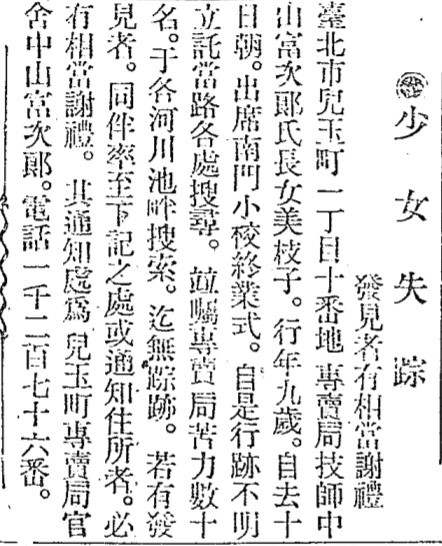 少女失踪
發見者有相當謝禮
臺北市兒玉町一丁目十番地 專賣局技師中
山富次郞氏長女美枝子。行年九歲。自去十
日朝。出席南門小校終業式。自是行跡不明
立託當路各處搜尋。竝囑專賣局苦力數十
名。于各河川池畔搜索。迄無踪跡。若有發
見者。同伴率至下記之處或通知住所者。必
有相當謝禮。其通知處爲 兒玉町專賣局官
舍中山富次郞。電話一千二百七十六番。